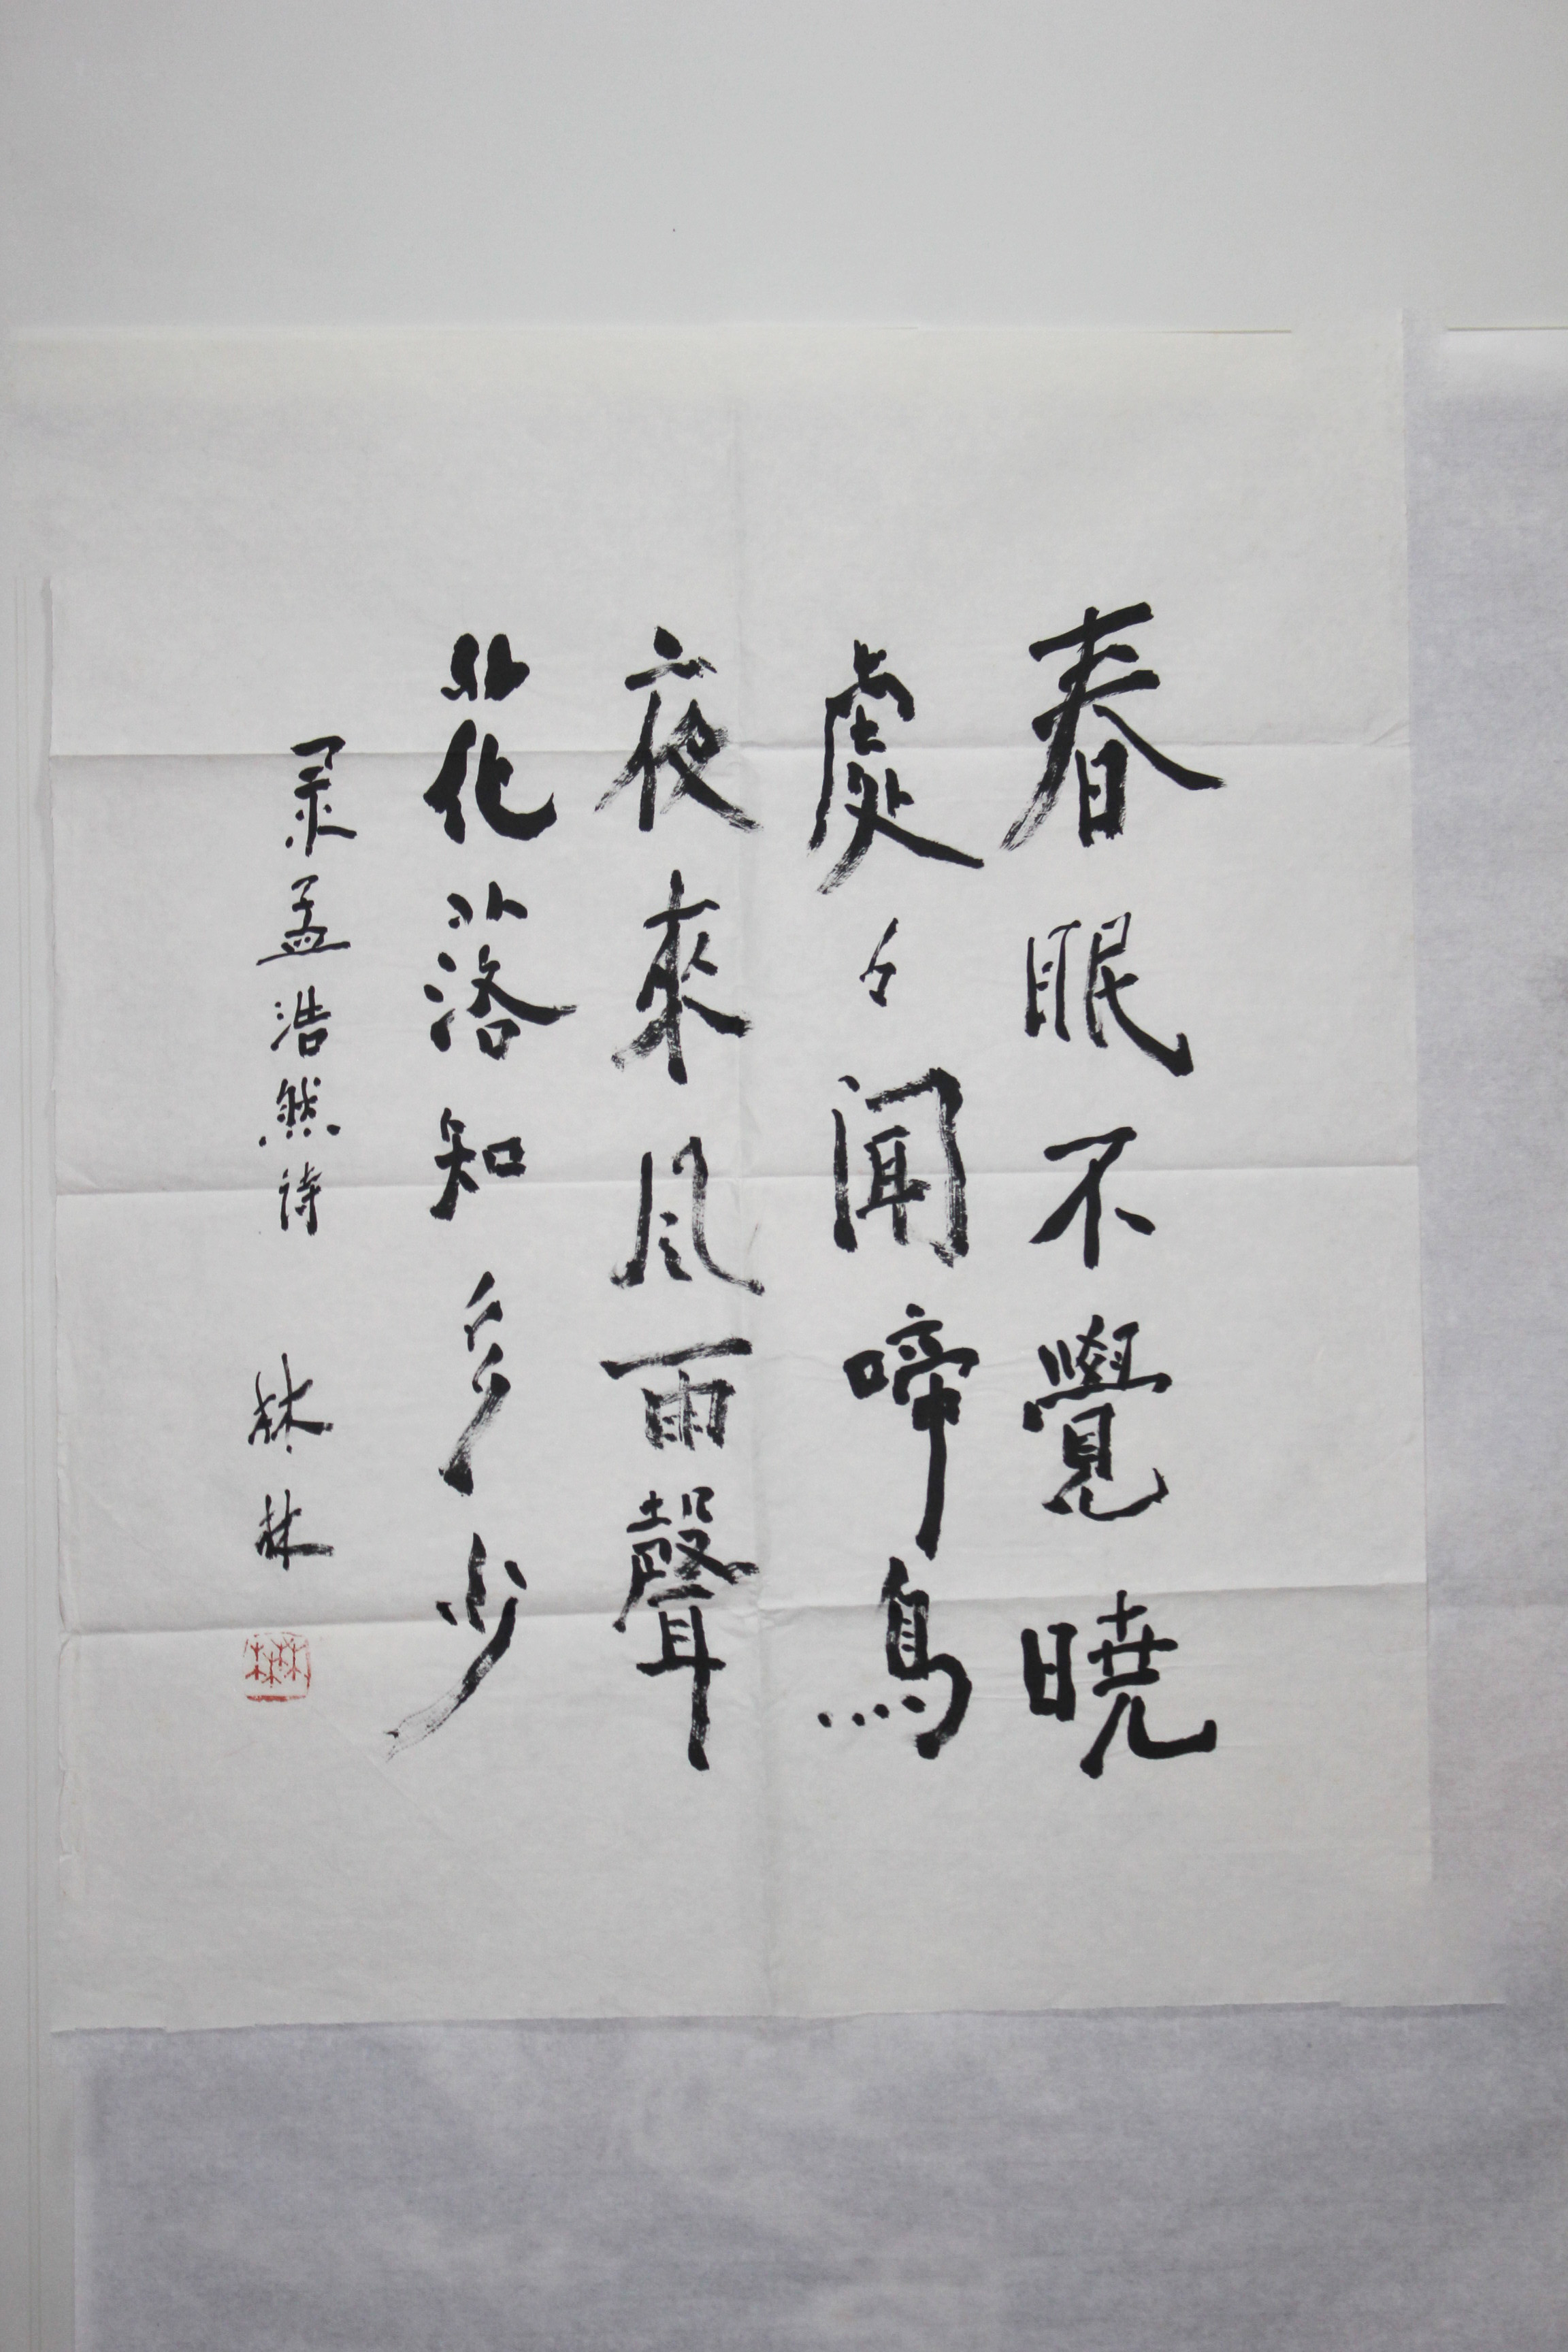 春眠不覺暁
處々聞啼鳥
夜來風雨聲
花落知多少
录孟浩然诗 林林
林林